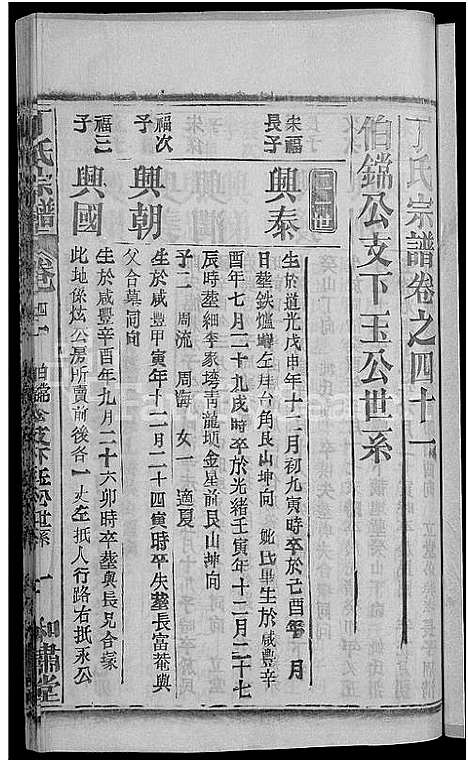 丁氏宗譜卷之四十一
伯鐺公支下玉公世系
朱福
長子
興泰
生於道光戊申年十二月初九寅時卒於己酉年 月
日塟鉄爐 左 台角艮山坤向 妣氏畢生於咸豐辛
酉年七月二十九戌時卒於光緒壬寅年十二月二十七
辰時塟細李家塆青龍垻金星前艮山坤向
子二 周流 周海 女一 適夏
福次
子
興朝
生於咸豐甲寅年十二月二十四寅時卒失塟長富菴與
父合墓同向
福三
子
興國
生於咸豐辛酉年九月二十六卯時卒塟與長兄合冢
此地係炫公房所賣前後各一丈左抵人行路右抵永公
丁氏宗譜
卷四十一
伯鐺公支下玉公世系
一
肅堂